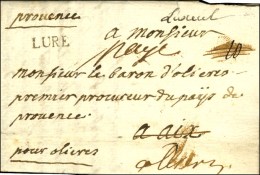 provence
Luxeuil
a monsieur
LURE
10
monsieur le baron d'olieres
premier procureur du païs de
provence
a aix
pour olieres